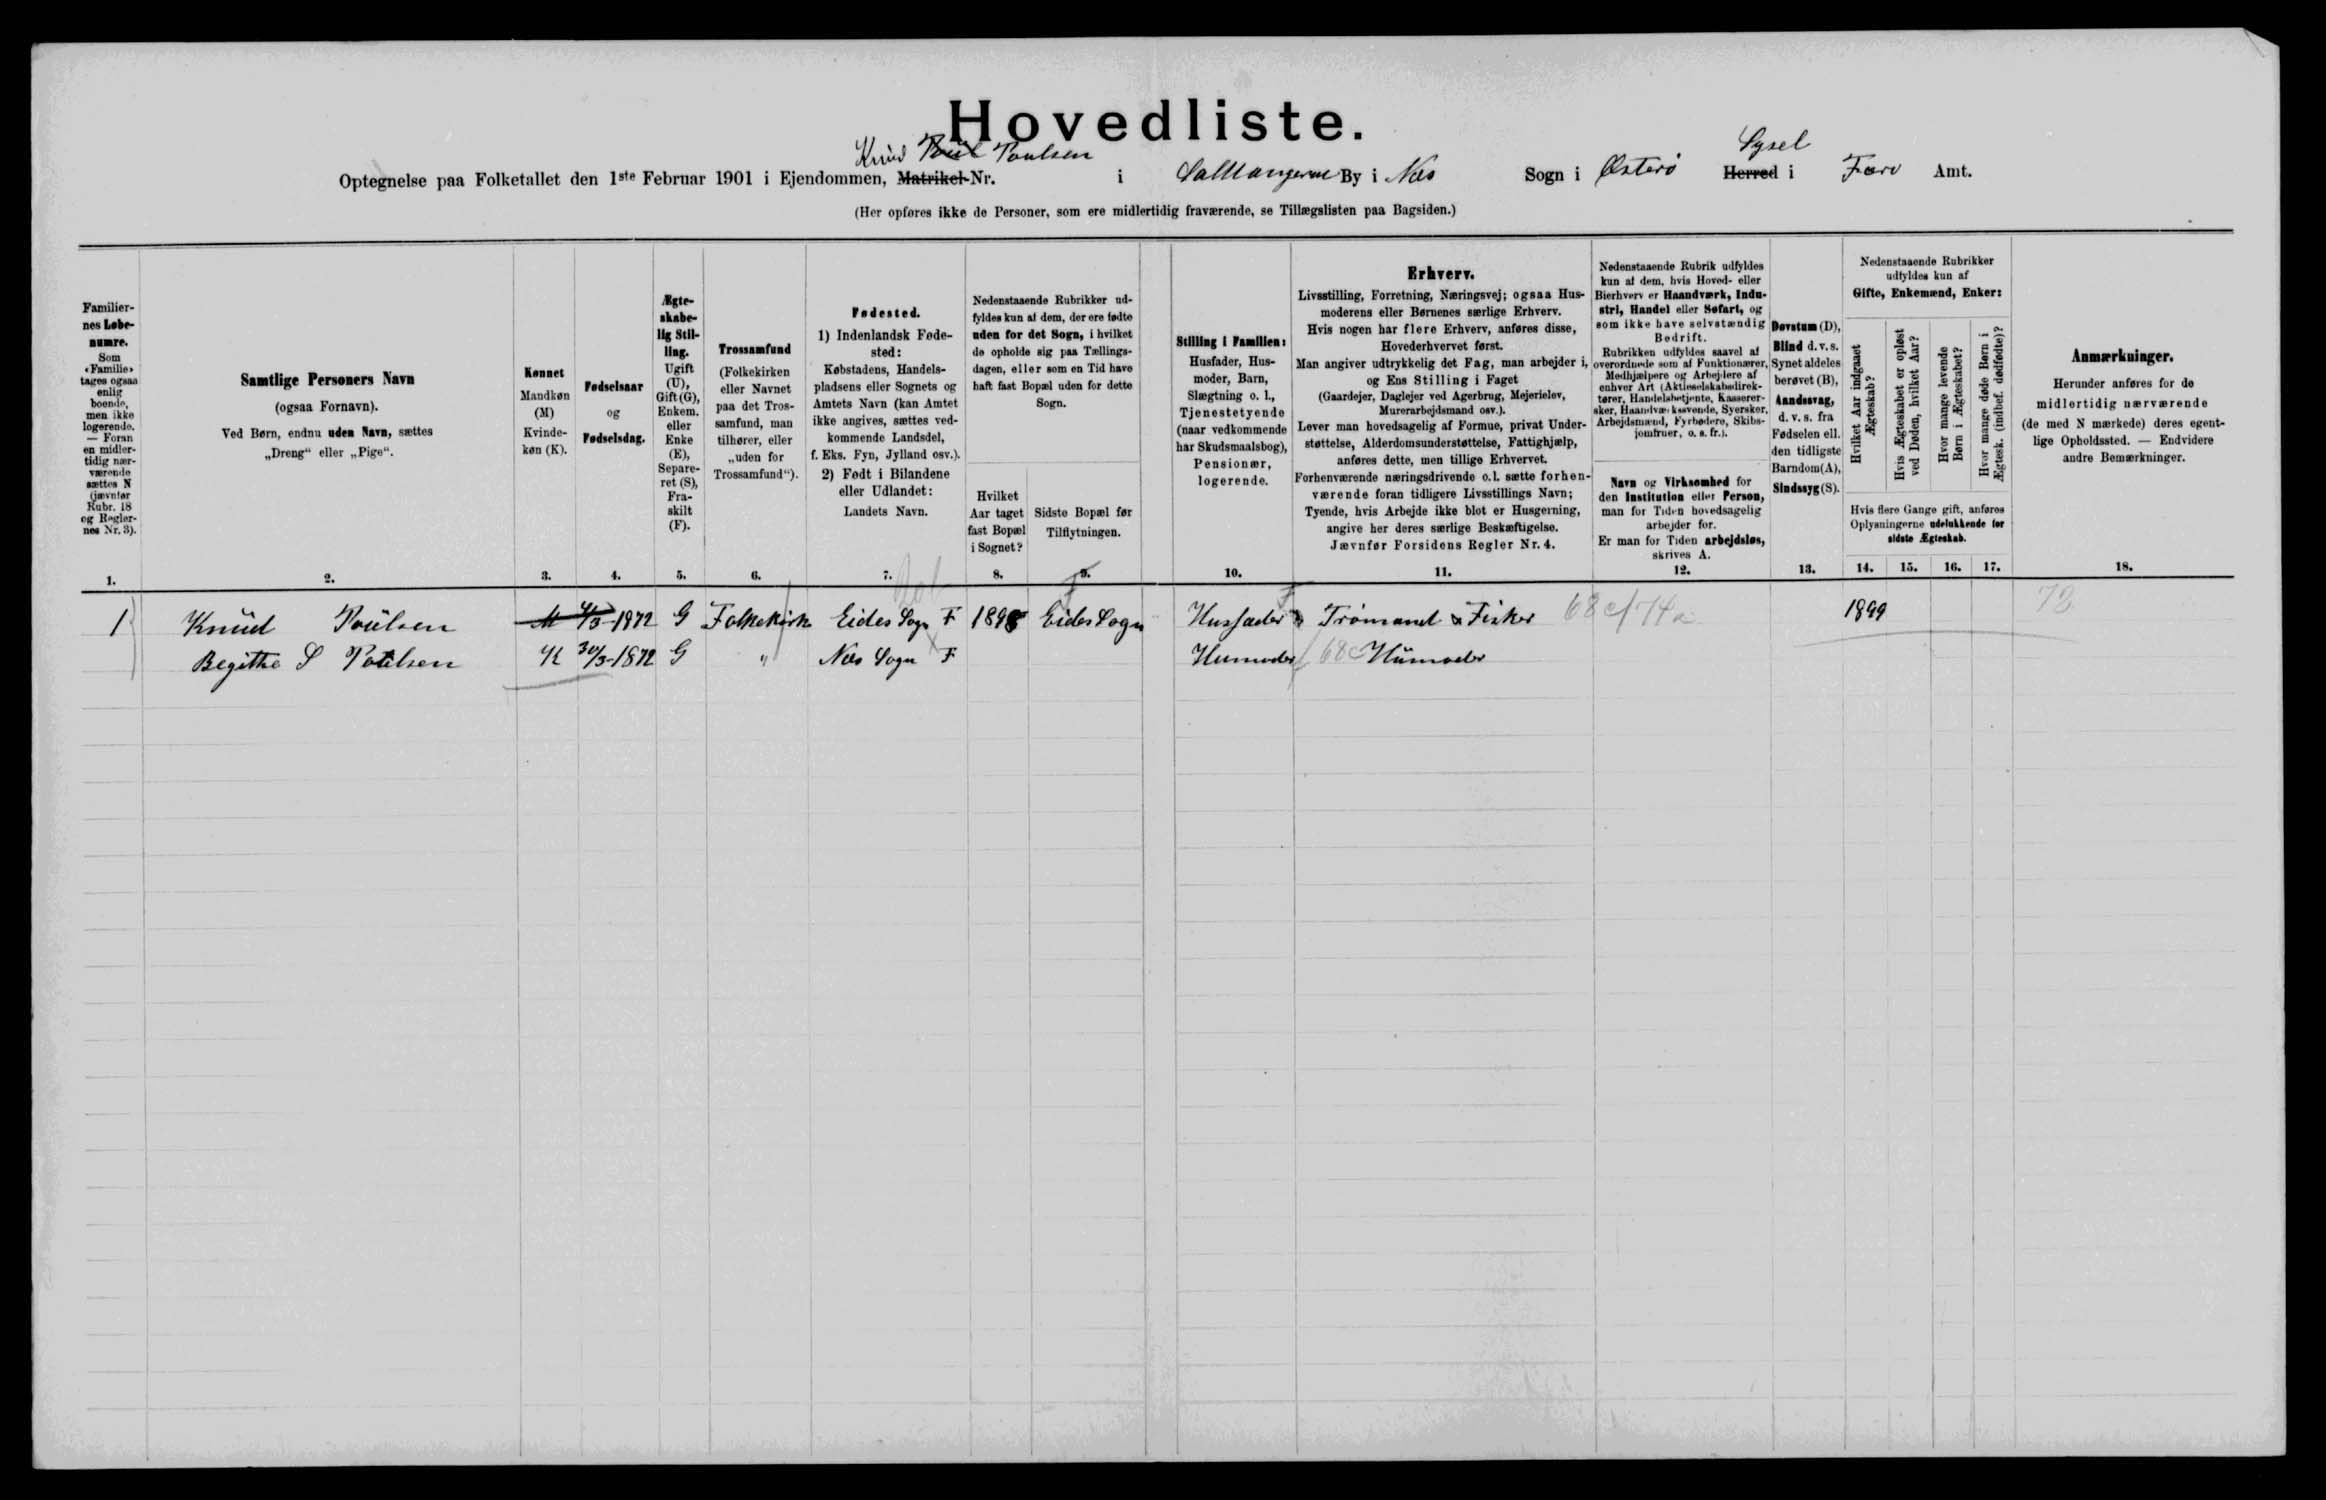 Hovedliste.
Knud Poul Poulsen
Sysel
Optegnelse paa Folketallet den 1ste Februar 1901 i Ejendommen, Matrikel-Nr. i Saltangerne By i Nes Sogn i Østerø Herred i Færø Amt.
(Her opføres ikke de Personer, som ere midlertidig fraværende, se Tillægslisten paa Bagsiden.)
Familier-
nes Løbe-
numre.
Som
«Familie»
tages ogsaa
enlig
boende,
men ikke
logerende.
— Foran
en midler-
tidig nær-
værende
sættes N
(jævnfør
Rubr. 18
og Regler-
nes Nr. 3).
1.
Samtlige Personers Navn
(ogsaa Fornavn).
Ved Børn, endnu uden Navn, sættes
„Dreng“ eller „Pige“.
2.
Kønnet
Mandkøn
(M)
Kvinde-
køn (K).
3.
Fødselsaar
og
Fødselsdag.
4.
Ægte-
skabe-
lig Stil-
ling.
Ugift
(U),
Gift (G),
Enkem.
eller
Enke
(E),
Separe-
ret (S),
Fra-
skilt
(F).
5.
Trossamfund
(Folkekirken
eller Navnet
paa det Tros-
samfund, man
tilhører, eller
„uden for
Trossamfund“).
6.
Fødested.
1) Indenlandsk Føde-
sted:
Købstadens, Handels-
pladsens eller Sognets og
Amtets Navn (kan Amtet
ikke angives, sættes ved-
kommende Landsdel,
f. Eks. Fyn, Jylland osv.).
2) Født i Bilandene
eller Udlandet:
Landets Navn.
7.
Nedenstaaende Rubrikker ud-
fyldes kun af dem, der ere fødte
uden for det Sogn, i hvilket
de opholde sig paa Tællings-
dagen, eller som en Tid have
haft fast Bopæl uden for dette
Sogn.
Hvilket
Aar taget
fast Bopæl
i Sognet?
8.
Sidste Bopæl før
Tilflytningen.
9.
Stilling i Familien:
Husfader, Hus-
moder, Barn,
Slægtning o. l.,
Tjenestetyende
(naar vedkommende
har Skudsmaalsbog),
Pensionær,
logerende.
10.
Erhverv.
Livsstilling, Forretning, Næringsvej; ogsaa Hus-
moderens eller Børnenes særlige Erhverv.
Hvis nogen har flere Erhverv, anføres disse,
Hovederhvervet først.
Man angiver udtrykkelig det Fag, man arbejder i,
og Ens Stilling i Faget
(Gaardejer, Daglejer ved Agerbrug, Mejerielev,
Murerarbejdsmand osv.).
Lever man hovedsagelig af Formue, privat Under-
støttelse, Alderdomsunderstøttelse, Fattighjælp,
anføres dette, men tillige Erhvervet.
Forhenværende næringsdrivende o. l. sætte forhen-
værende foran tidligere Livsstillings Navn;
Tyende, hvis Arbejde ikke blot er Husgerning,
angive her deres særlige Beskæftigelse.
Jævnfør Forsidens Regler Nr. 4.
11.
Nedenstaaende Rubrik udfyldes
kun af dem, hvis Hoved- eller
Bierhverv er Haandværk, Indu-
stri, Handel eller Søfart, og
som ikke have selvstændig
Bedrift.
Rubrikken udfyldes saavel af
overordnede som af Funktionærer,
Medhjælpere og Arbejdere af
enhver Art (Aktieselskabsdirek-
tører, Handelsbetjente, Kasserer-
sker, Haandværkssvende, Syersker,
Arbejdsmænd, Fyrbødere, Skibs-
jomfruer, o. s. fr.).
Navn og Virksomhed for
den Institution eller Person,
man for Tiden hovedsagelig
arbejder for.
Er man for Tiden arbejdsløs,
skrives A.
12.
Døvstum (D),
Blind d. v. s.
Synet aldeles
berøvet (B),
Aandssvag,
d. v. s. fra
Fødselen ell.
den tidligste
Barndom (A),
Sindssyg (S).
13.
Nedenstaaende Rubrikker
udfyldes kun af
Gifte, Enkemænd, Enker:
Hvilket Aar indgaaet
Ægteskab?
Hvis Ægteskabet er opløst
ved Døden, hvilket Aar?
Hvor mange levende
Børn i Ægteskabet?
Hvor mange døde Børn i
Ægtesk. (indbef. dødfødte)?
Hvis flere Gange gift, anføres
Oplysningerne udelukkende for
sidste Ægteskab.
14. 15. 16. 17.
Anmærkninger.
Herunder anføres for de
midlertidig nærværende
(de med N mærkede) deres egent-
lige Opholdssted. — Endvidere
andre Bemærkninger.
18.
1 Knud Poulsen M 4/3-1872 G Folkekirk Eides Sogn F 1898 Eides Sogn Husfader Tromand & Fisker 68c/74a 1899 72
Begithe S Poulsen K 30/3-1872 G „ Nes Sogn F Husmoder 68c Husmoder